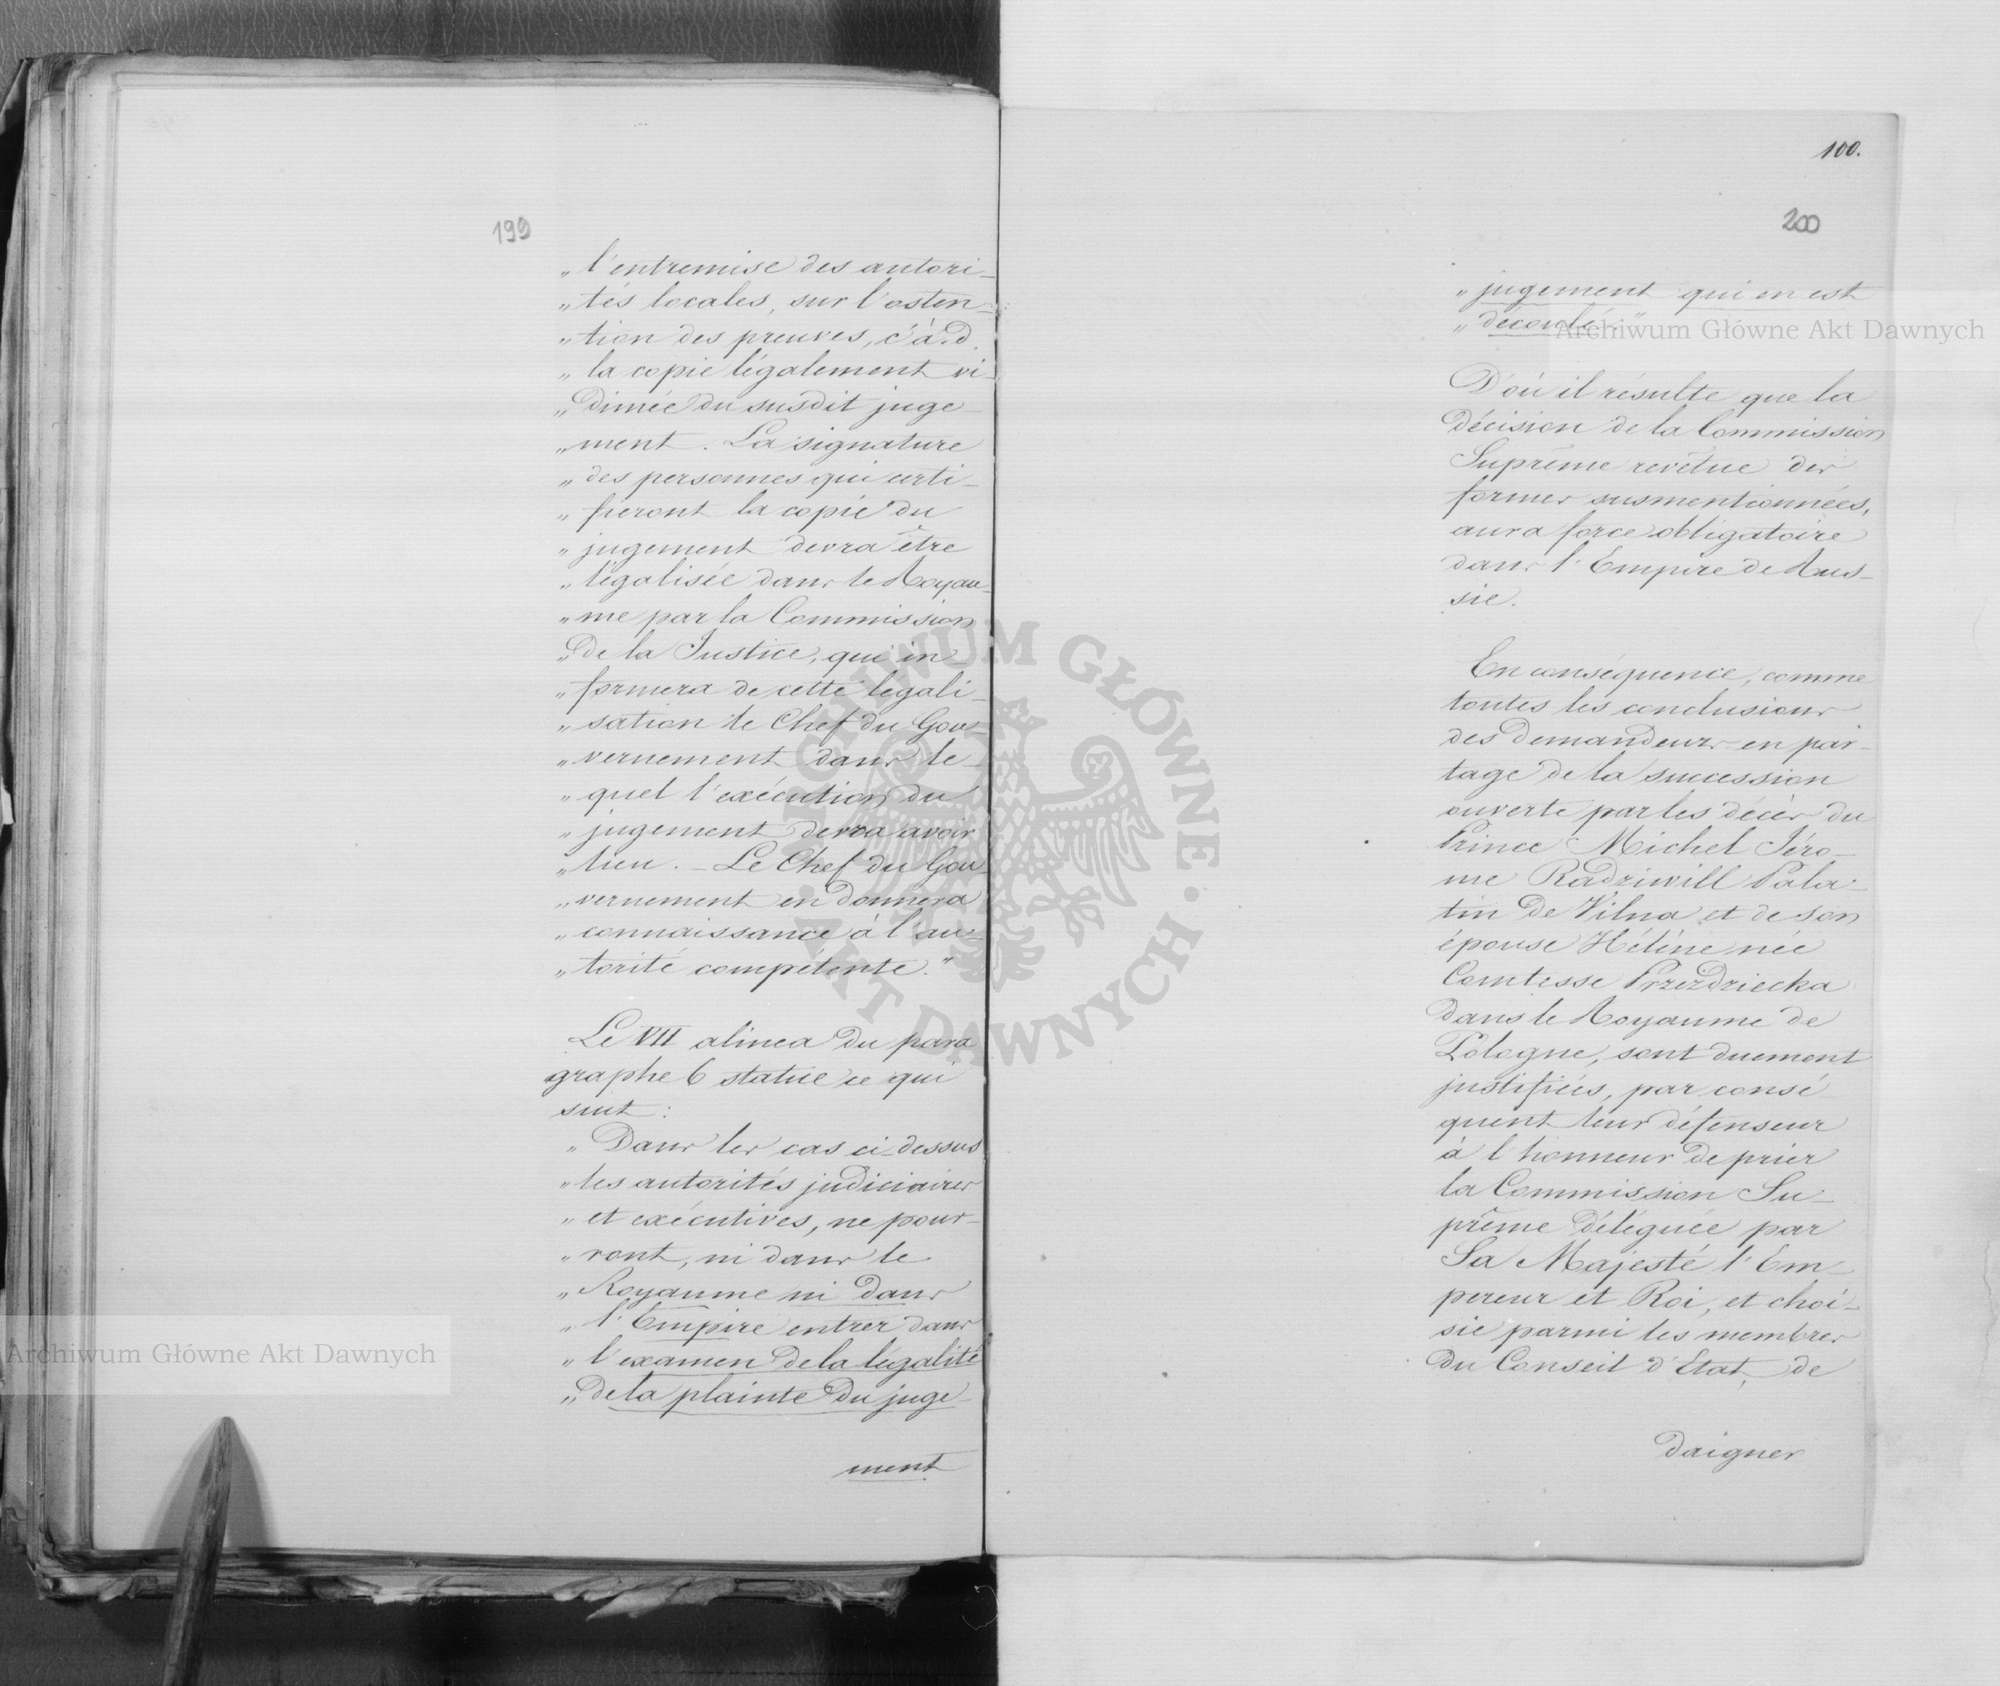 199
„l'entremise des autori-
„tés locales, sur l'osten-
„tion des preuves, c'à.d.
„la copie légalement vi-
„dimée du susdit juge-
„ment. La signature
„des personnes qui certi-
„fieront la copie du
„jugement devra être
„légalisée dans le Royau-
„me par la Commission
„de la Justice, qui in-
„formera de cette légali-
„sation le Chef du Gou-
„vernement dans le-
„quel l'exécution du
„jugement devra avoir
„lieu. – Le Chef du Gou-
„vernement en donnera
„connaissance à l'au-
„torité compétente."
Le VII alinea du para
graphe 6 statue ce qui
suit:
„Dans les cas ci-dessus
„les autorités judiciaires
„et exécutives, ne pour-
„ront, ni dans le
„Royaume ni dans
„l'Empire entrer dans
„l'examen de la légalité
„de la plainte du juge-
ment
100.
200
„jugement qui en est
„découlé."
D'où il résulte que la
décision de la Commission
Suprême revêtue des
formes susmentionnées,
aura force obligatoire
dans l'Empire de Rus-
sie.
En consequence, comme
toutes les conclusions
des demandeurs en par-
tage de la succession
ouverte par les décès du
Prince Michel Jéro-
me Radziwill Pala-
tin de Vilna et de son
épouse Hélène née
Comtesse Przezdziecka
dans le Royaume de
Pologne, sont duement
justifiées, par consé
quent leur défenseur
à l'honneur de prier
la Commission Su-
prême déléguée par
Sa Majesté l'Em-
pereur et Roi, et choi-
sie parmi les membres
du Conseil d'Etat, de
daigner
Archiwum Główne Akt Dawnych
Archiwum Główne Akt Dawnych
ARCHIWUM GŁÓWNE · AKT DAWNYCH ·